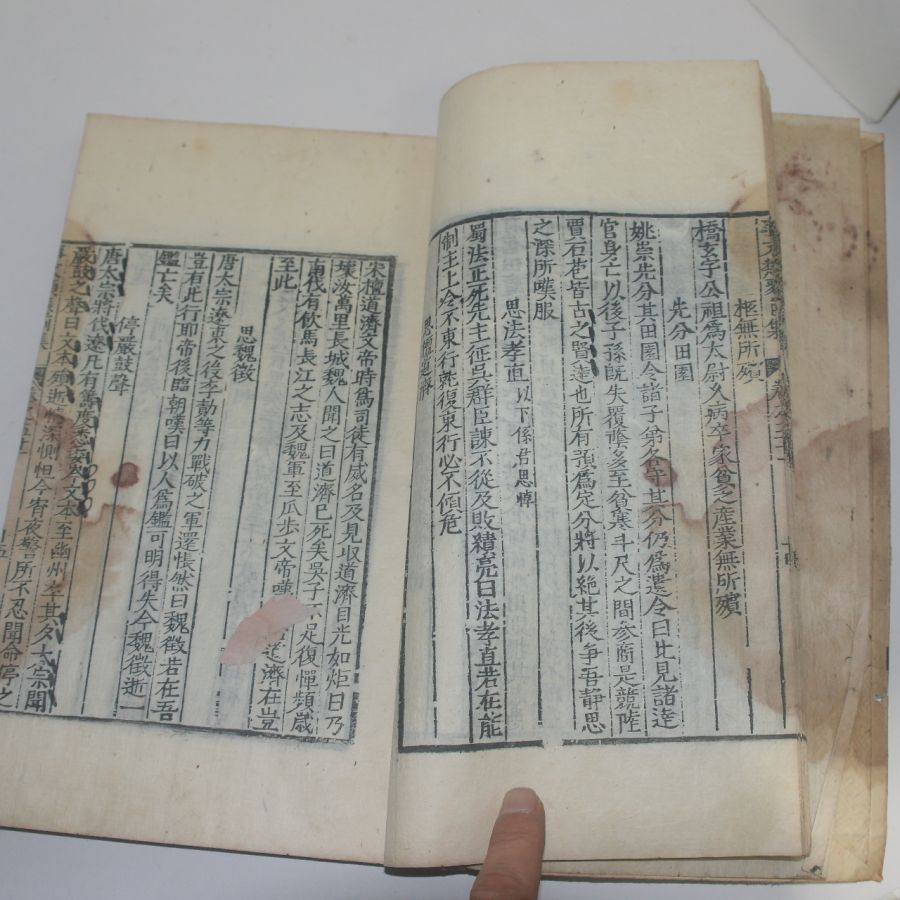 極無所殯
橋玄字公祖爲太尉久病卒家貧乏產業無所殯
先分田園
姚崇先分其田園令諸子弟各守其分仍爲遺令曰比見諸達
官身亡以後子孫旣失覆蔭多至貧寒斗尺之間參商是競陸
賈石苞皆古之賢達也所有預爲定分將以絕其後爭吾靜思
之深所嘆服
思法孝直 以下係君思悼
蜀法正死先主征吳群臣諫不從及敗績亮曰法孝直若在能
制主上令不東行就復東行必不傾危
思檀道濟
宋檀道濟文帝時爲司徒有威名及見収道濟目光如炬曰乃
壞汝萬里長城魏人聞之曰道濟已死矣吳子不足復憚頻歲
南伐有飮馬長江之志及魏軍至瓜步文帝嘆道濟在豈
至此
思魏徵
唐太宗遼東之後李勣等力戰破之軍還悵然曰魏徵若在吾
豈有此行耶帝後臨朝嘆曰以人爲鑑可明得失今魏徵逝一
鑑亡矣
停嚴鼓聲
唐太宗將伐遼凡有籌度悉委岑文本至幽州卒其夕太宗聞
嚴鼓之聲曰文本殞逝情深惻怛今宵夜警所不忍聞命停之